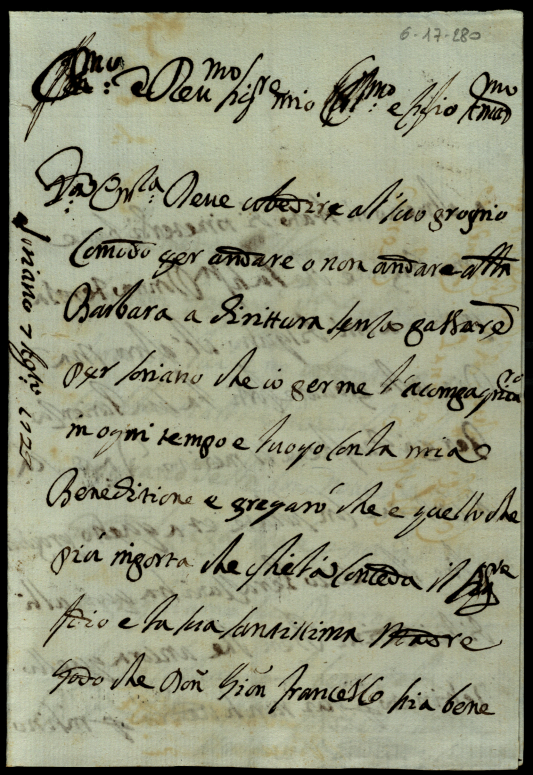 6-17-280
Ill.mo e Reu.mo sig.r mio Ill.mo e figlio Amat.mo
V.a Em.za Deue obedire al suo proprio
Comodo per andare o non andare alla
Barbara a dirittura senza passare
per Soriano che io per me l'acompagnio
in ogni tempo e luogo con la mia
Beneditione e pregarò che e quello che
più inporta che glie la Conceda il Sig.re
Idio e la sua santissima Madre
godo che Don Gion francesco stia bene
Soriano 7 Ag.to